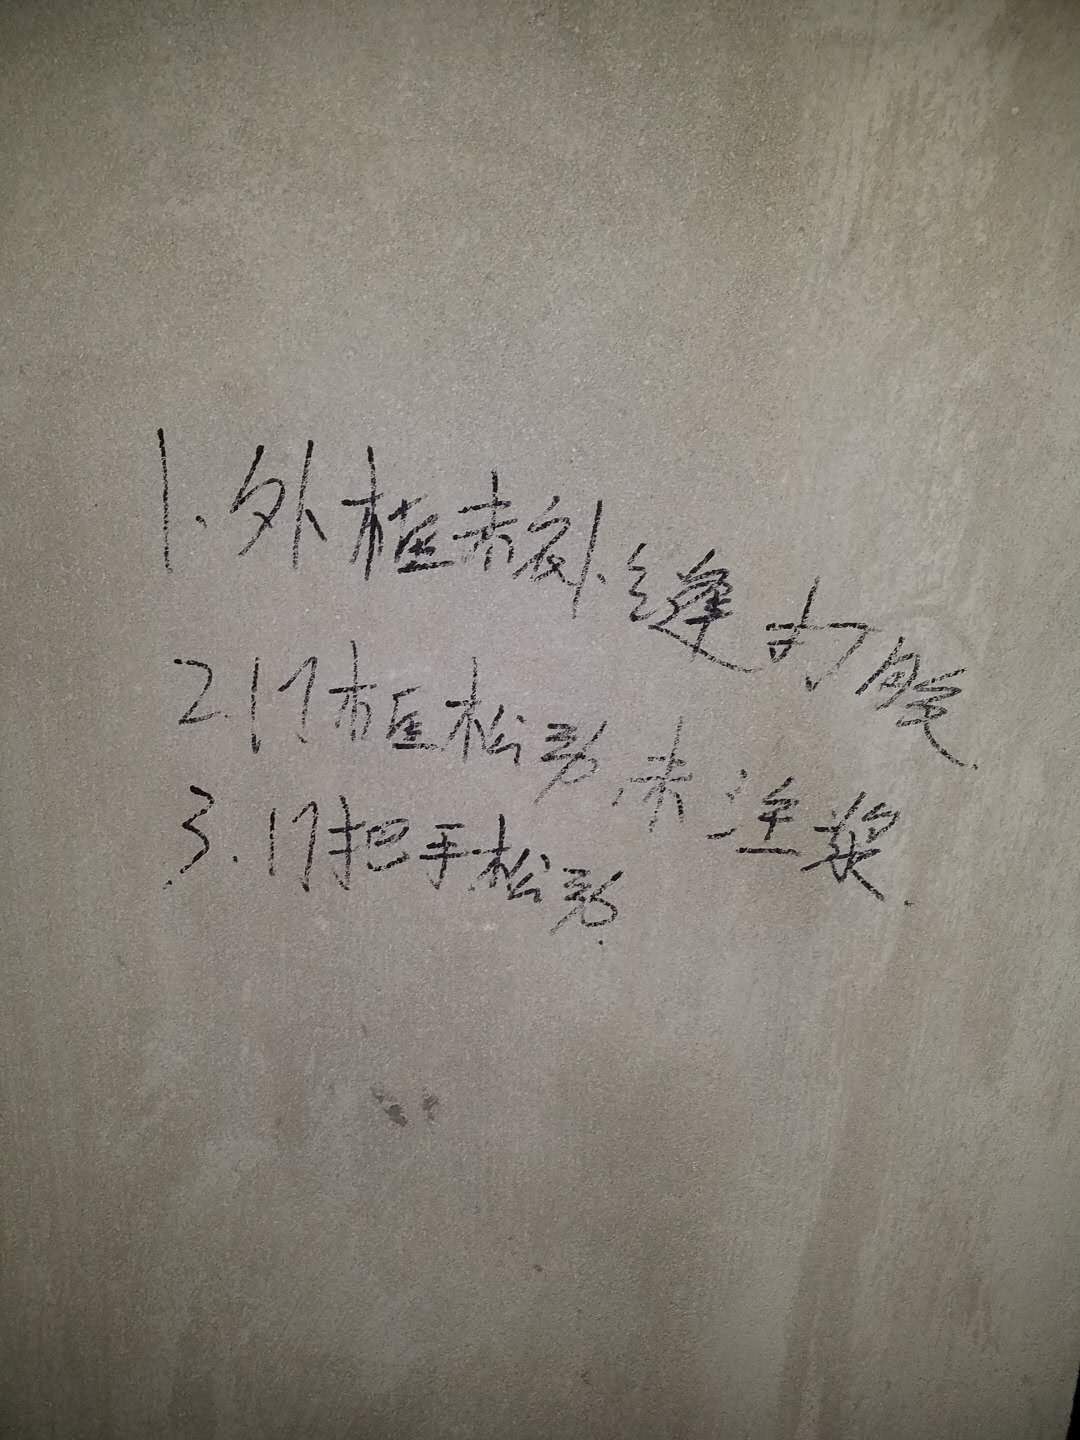 1.外框未补缝打胶.
2.门框松动,未注浆.
3.门把手松动.